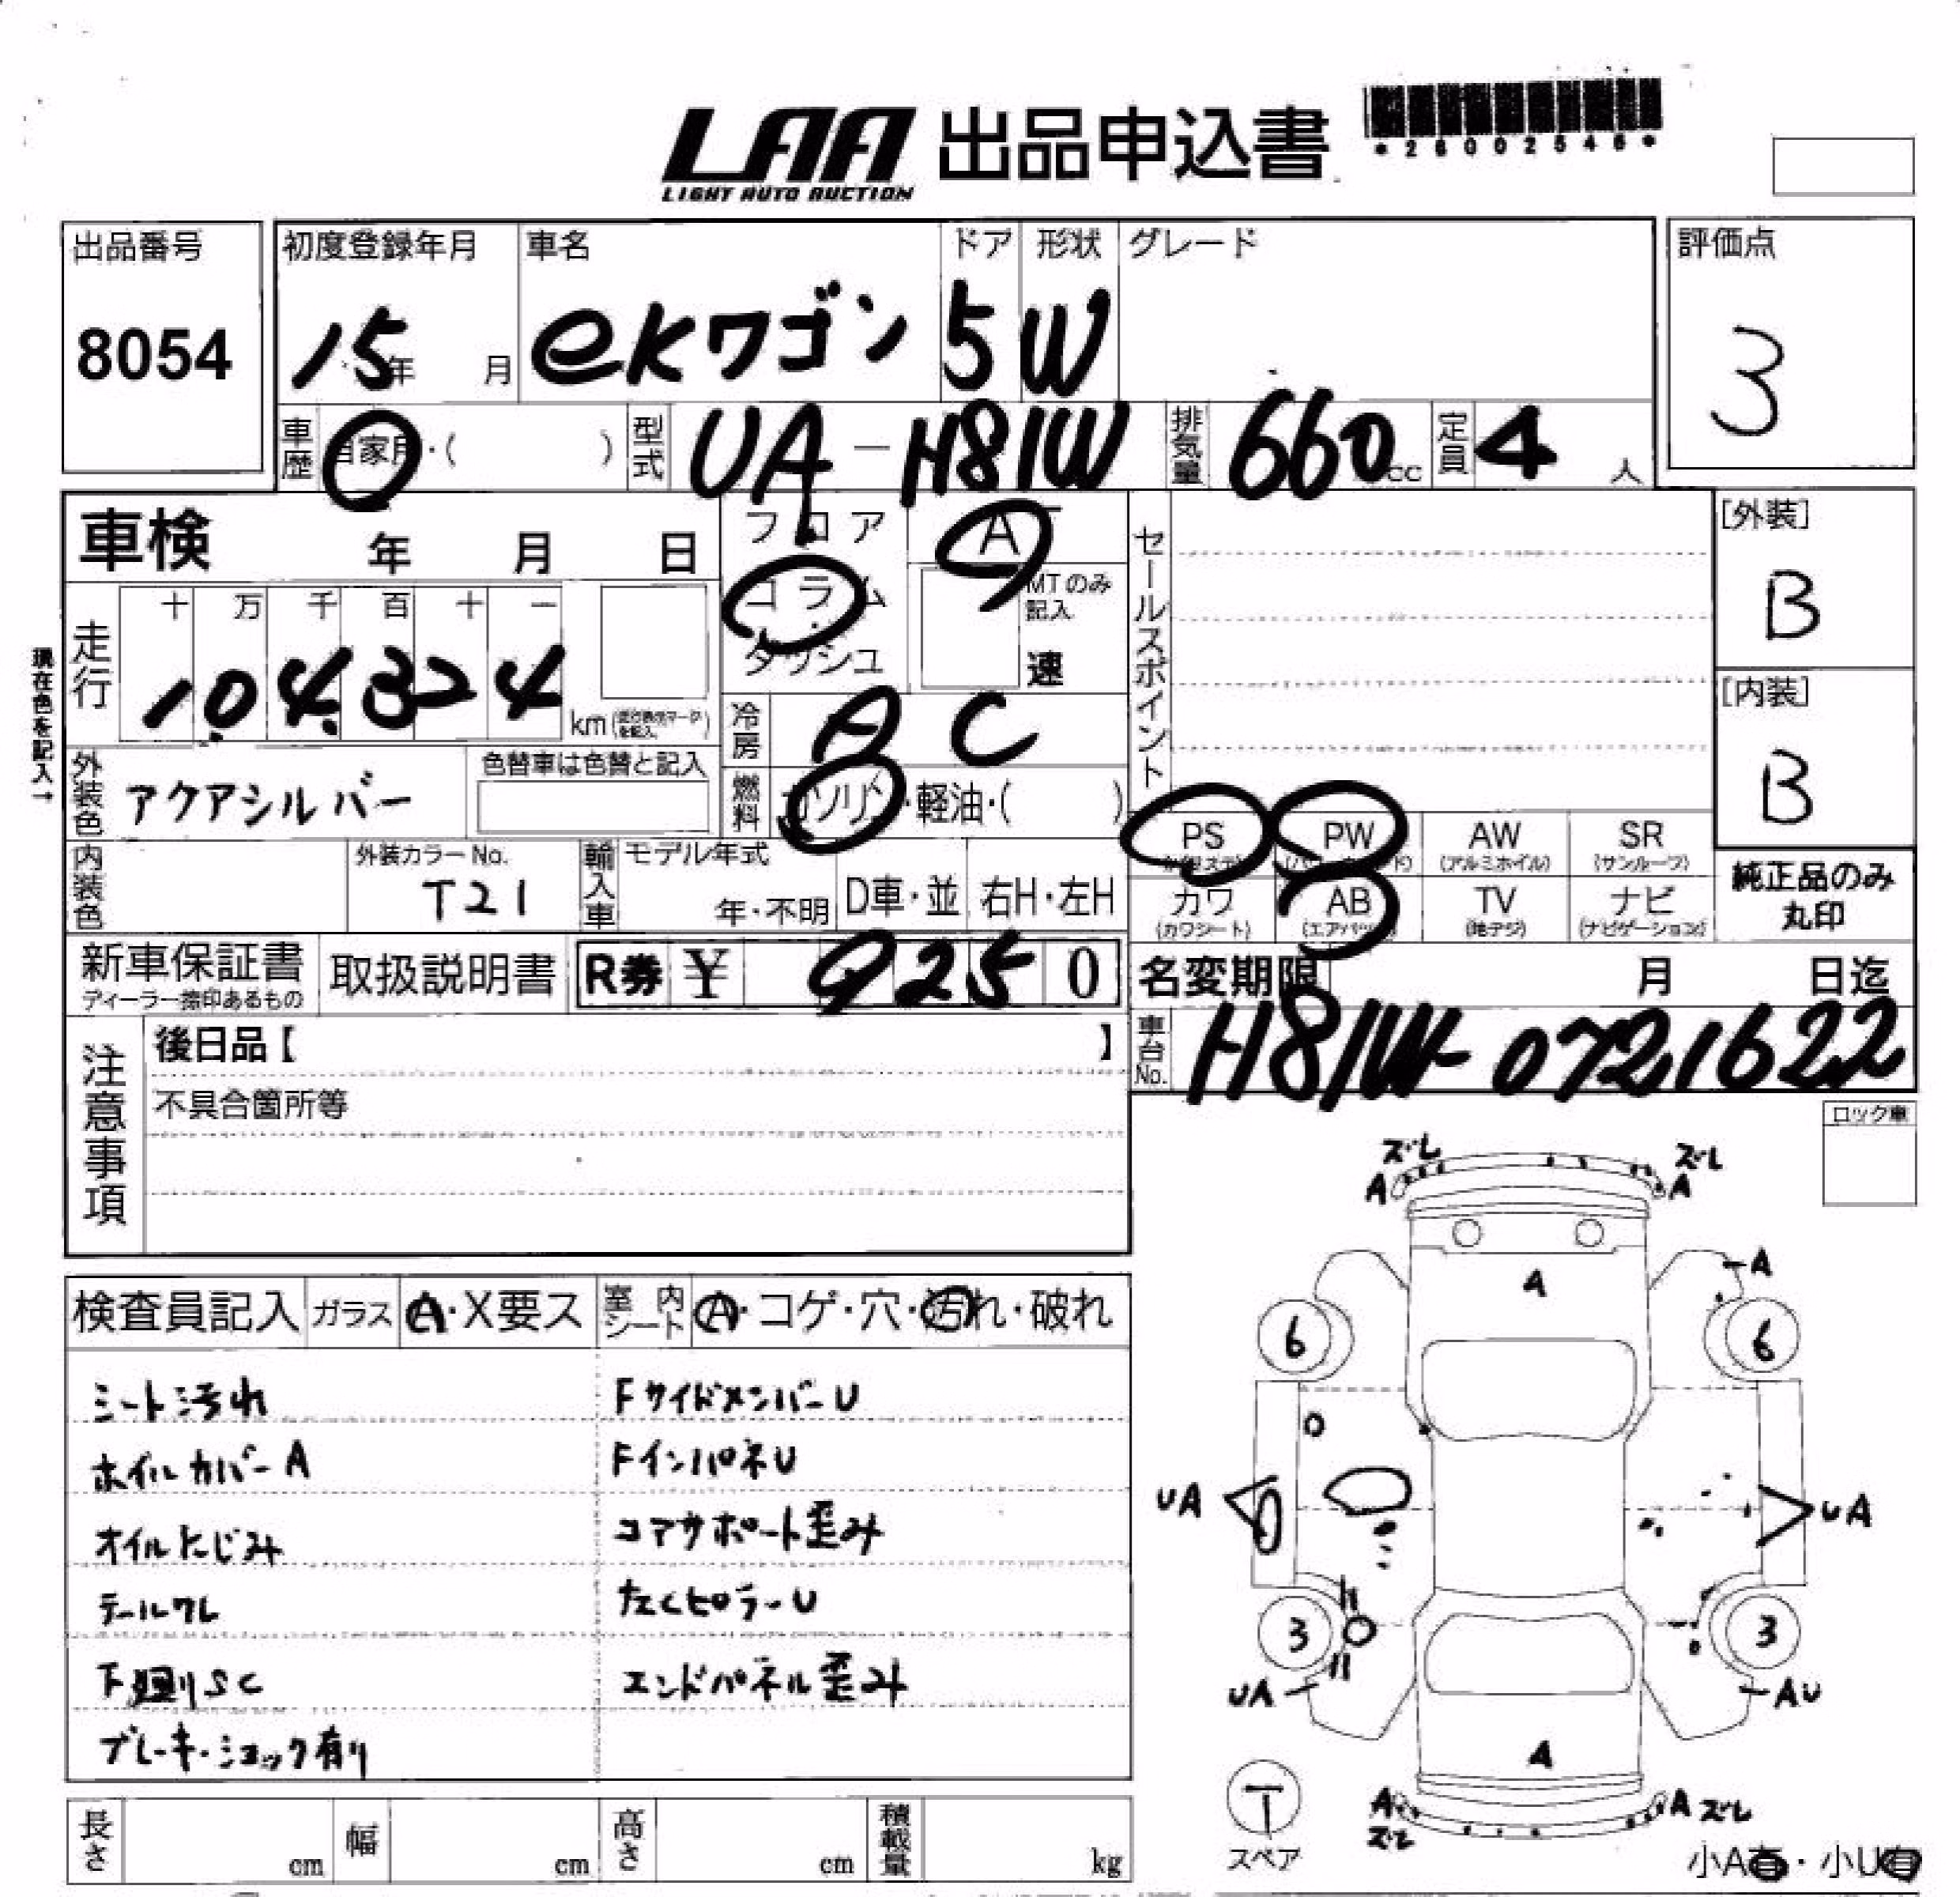 LAA 出品申込書
LIGHT AUTO AUCTION
*26002546*
出品番号 初度登録年月 車名 ドア 形状 グレード 評価点
8054 15年 月 ekワゴン 5 W 3
車歴 自家用・( ) 型式 UA-H81W 排気量 660cc 定員 4人
車検 年 月 日 フロア AT セールスポイント [外装]
コラム MTのみ記入 B
ダッシュ 速
走行 十 万 千 百 十 一
104,324 km
現在色を記入→
[内装]
B
冷房 AC
外装色 アクアシルバー 色替車は色替と記入 燃料 ガソリン・軽油・( )
PS PW AW SR
(パワーウインド) (アルミホイル) (サンルーフ)
内装色 外装カラーNo. T21 輸入車 モデル年式 年・不明 D車・並 右H・左H
カワ AB TV ナビ
(カワシート) (エアバッグ) (地デジ) (ナビゲーション)
純正品のみ
丸印
新車保証書 取扱説明書 R券 ¥ 9250 名変期限 月 日迄
ディーラー捺印あるもの
車台No. H81W-0721622
注意事項 後日品【 】
不具合箇所等
ロック車
検査員記入 ガラス A・X要ス 室内シート A・コゲ・穴・汚れ・破れ
シート汚れ FサイドメンバーU
ホイルカバーA FインパネU
オイルにじみ コアサポート歪み
テールワレ たくピラーU
下廻りSC エンドパネル歪み
ブレーキ・ショック有り
ズレ ズレ
A A
A A
6 6
UA UA
3 3
UA AU
A
A A ズレ
ズレ
T
スペア
小A有・小U有
長さ cm 幅 cm 高さ cm 積載量 kg